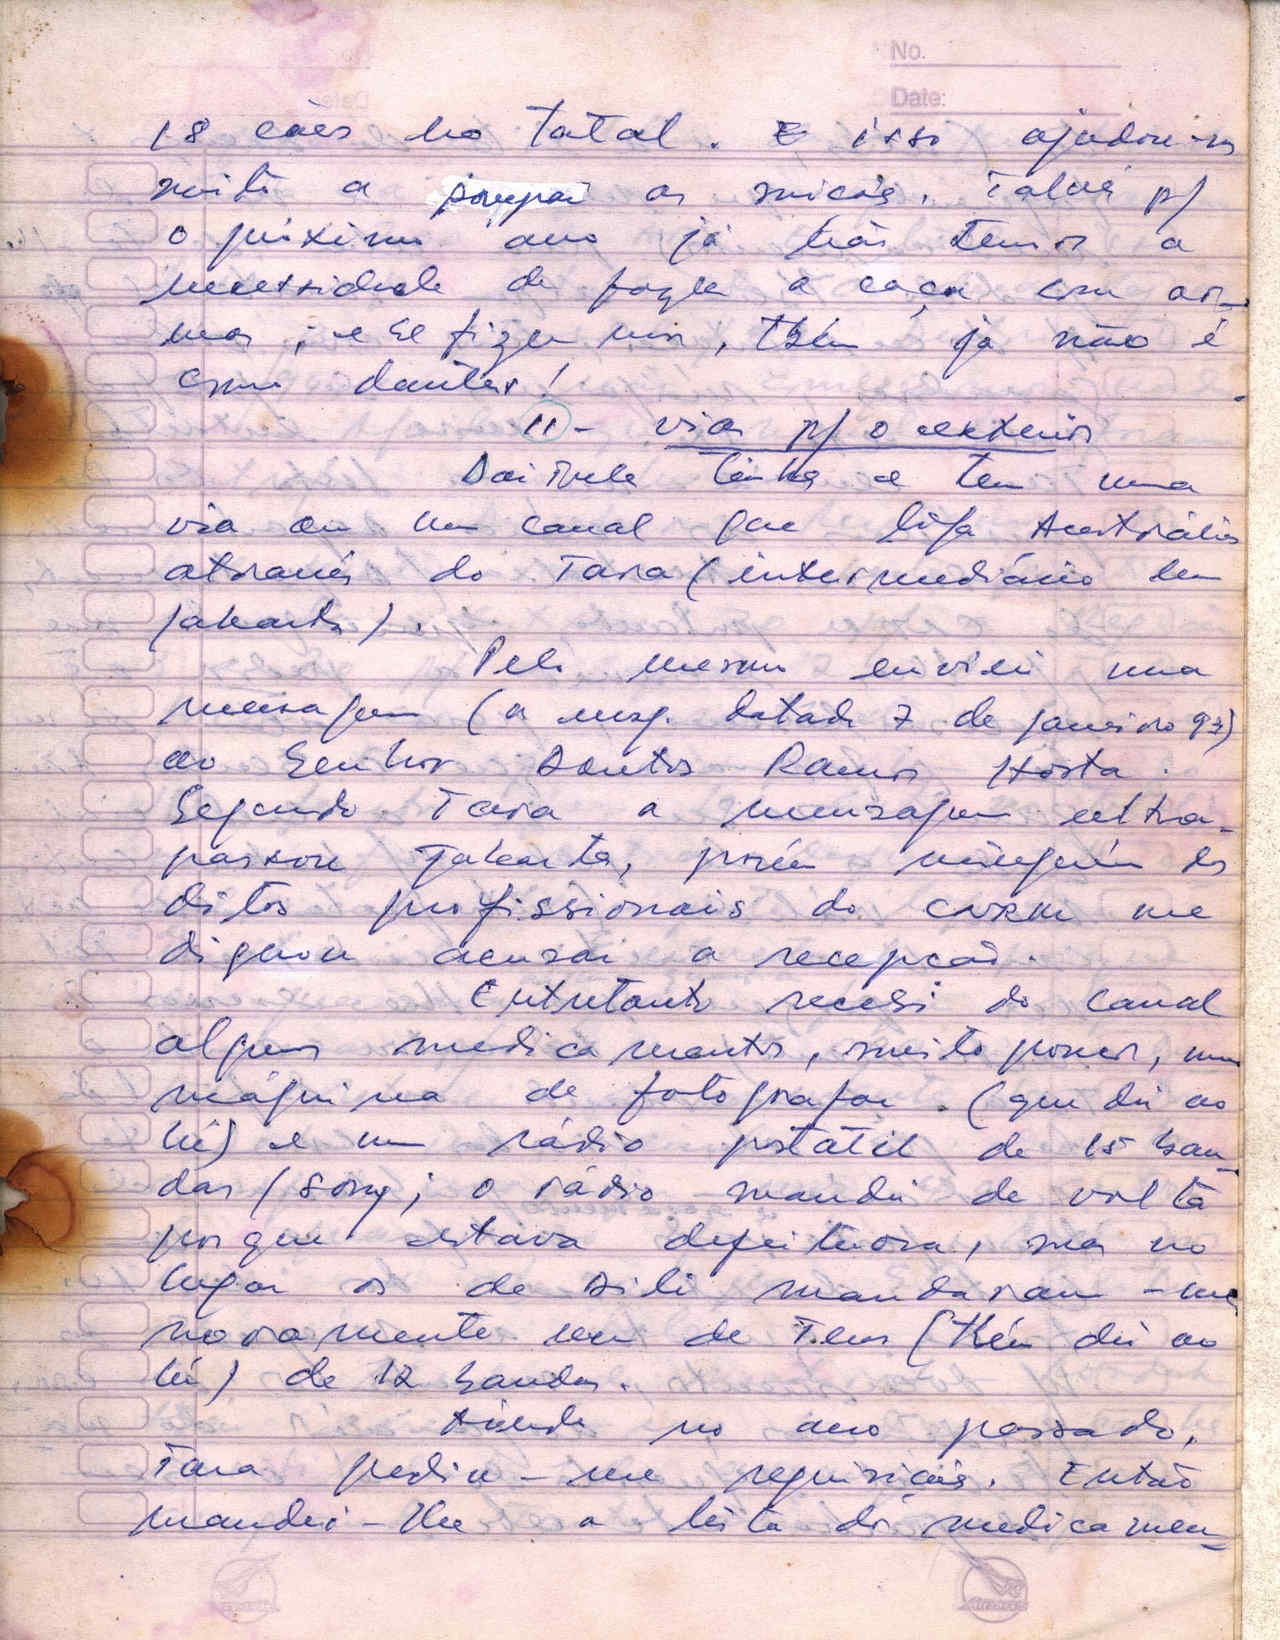 No.
Date:
18 cães no total. E isso ajudou-nos
muito a poupar as munições. Talvez p/
o próximo ano já não temos a
necessidade de fazer a caça com ar-
mas; e se fizermos, tbém já não é
como dantes!
11 - vias p/ o exterior
Daitula tinha e tem uma
via ou um canal que liga Austrália
através do Tara (intermediário em
Jakarta).
Pelo mesmo enviei uma
mensagem (a msg. datada 7 de janeiro 93)
ao Senhor Santos Ramos Horta.
Segundo Tara a mensagem ultra-
passou Jakarta, porém ninguém dos
ditos profissionais do CNRM me
dignou acusar a recepção.
Entretanto recebi do canal
alguns medicamentos, muito poucos, uma
máquina de fotografar (que dei ao
Lú) e um rádio portátil de 15 ban-
das (Sony; o rádio mandei de volta
porque estava defeituosa, mas no
lugar os de Dili mandaram-me
novamente um de Tens (tbém dei ao
Lú) de 12 bandas.
Ainda no ano passado,
Tara pediu-me requisições. Então
mandei-lhe a lista dos medicamen-